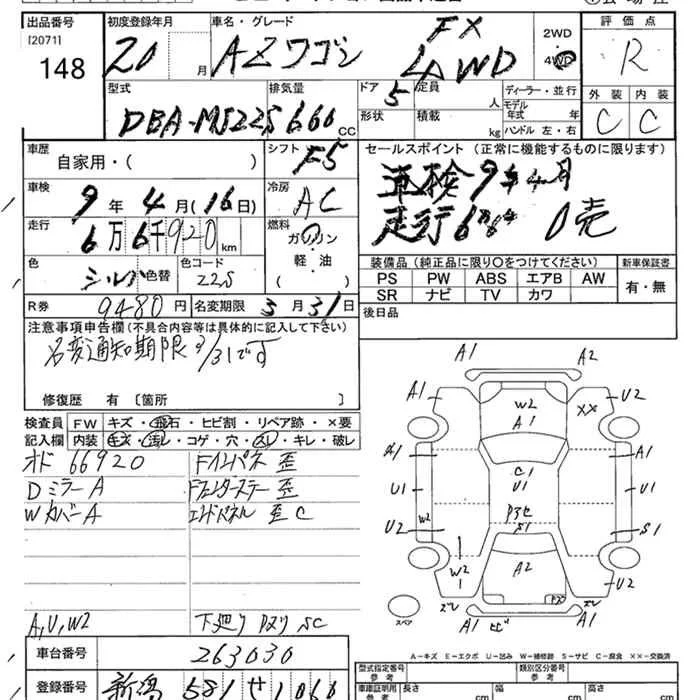 出品番号
[2071]
148
初度登録年月
20 月
車名・グレード
AZワゴン
FX
4WD
2WD
4WD
評価点
R
外装 内装
C C
型式
DBA-MJ22S
排気量
660 CC
ドア
5
定員
人
形状
積載
kg
ディーラー・並行
モデル年式 年
ハンドル 左・右
車歴
自家用・( )
シフト
F5
セールスポイント (正常に機能するものに限ります)
車検9年4月
走行6万k 0売
車検
9年4月(16日)
冷房
AC
走行
6万6千920km
燃料
ガソリン
軽・油
( )
色
シルバ 色替
色コード
Z2S
装備品(純正品に限り○をつけてください)
新車保証書
PS PW ABS エアB AW
SR ナビ TV カワ
有・無
R券 9480円
名変期限 3月31日
後日品
注意事項申告欄(不具合内容等は具体的に記入して下さい)
名変通知期限3/31です
修復歴 有 〔箇所 〕
検査員
記入欄
FW キズ・飛石・ヒビ割・リペア跡・×要
内装 キズ・汚レ・コゲ・穴・スレ・キレ・破レ
オド 66920
Dミラー A
Wカバー A
Fインパネ 歪
Fフェンダーステー 歪
エンドパネル 歪 C
A,U,W2
下廻り Pヌリ SC
A1 A2
A1 W2 A1 XX U2
A1 C1 A1
U1 U1 U1
U2 W2 P3セ S1 S1
W2 A2 U2
ズレ P3 ズレ
スペア A1 ヒビ A1
A-キズ E-エクボ U-凹み W-補修跡 S-サビ C-腐食 ××-交換済
車台番号
263030
登録番号
新潟 581 せ 1060
型式指定番号
参考
類別区分番号
参考
車庫証明用
参考
長さ cm
幅 cm
高さ cm